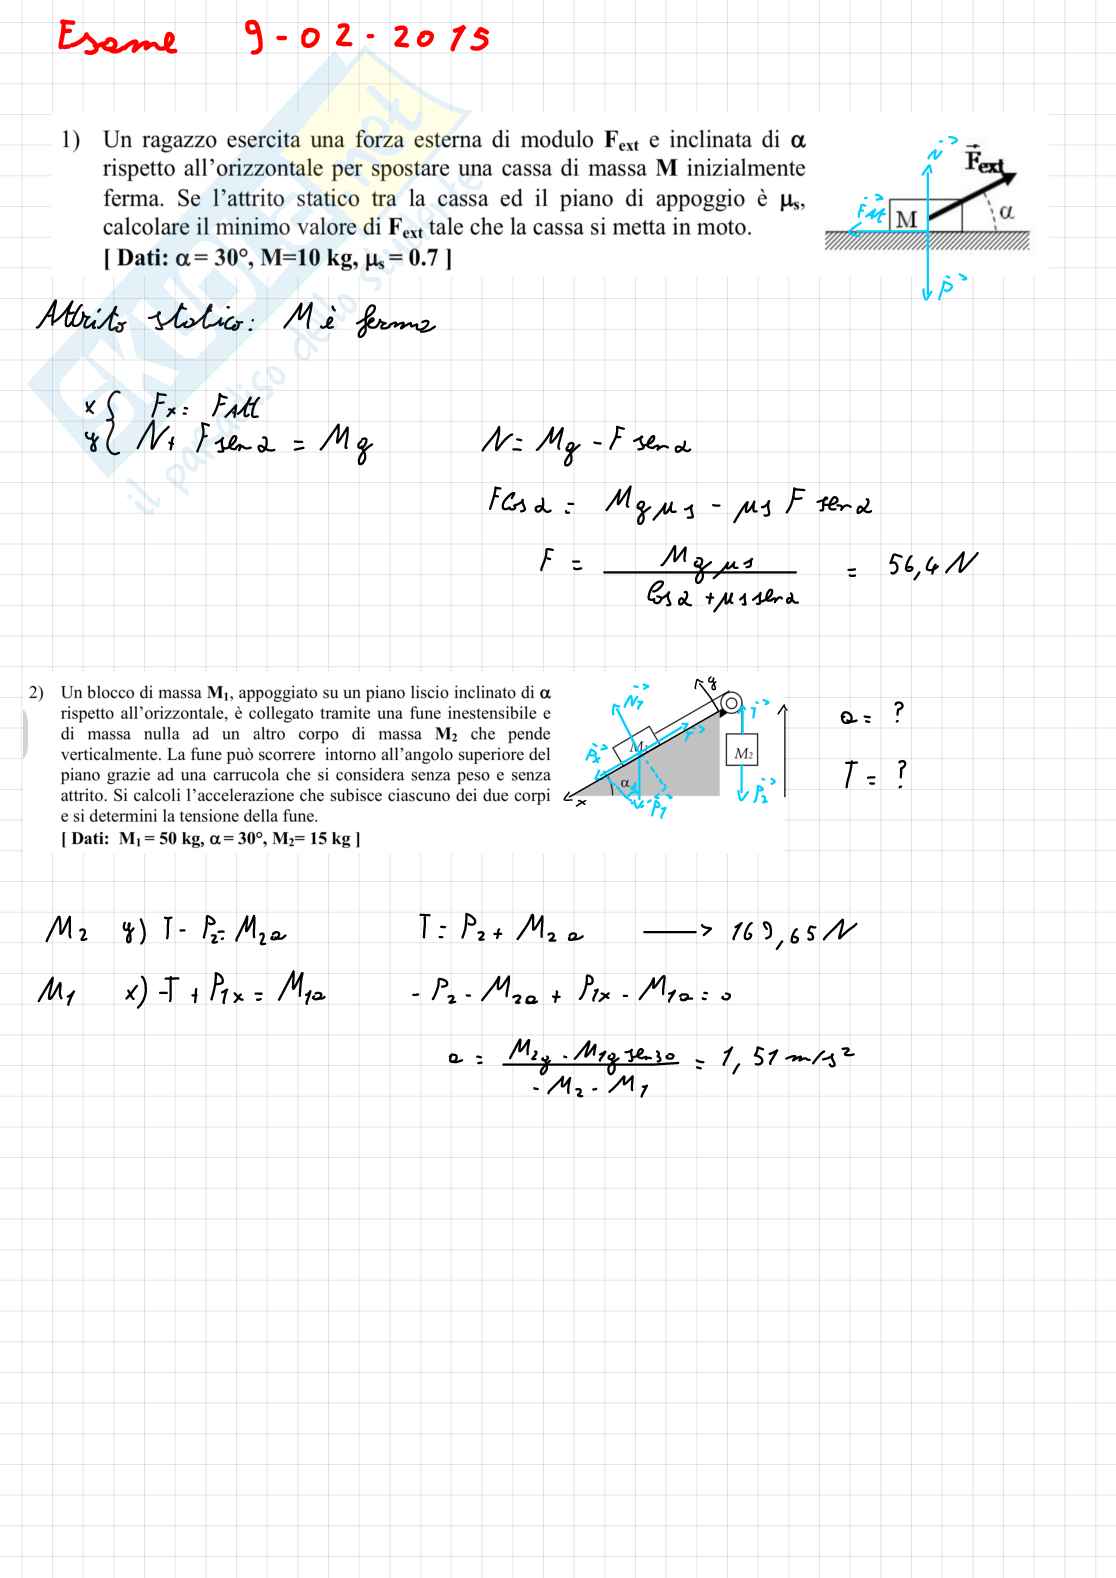 Esame 9-02-2015
1) Un ragazzo esercita una forza esterna di modulo Fext e inclinata di α
rispetto all'orizzontale per spostare una cassa di massa M inizialmente
ferma. Se l'attrito statico tra la cassa ed il piano di appoggio è μs,
calcolare il minimo valore di Fext tale che la cassa si metta in moto.
[ Dati: α = 30°, M=10 kg, μs = 0.7 ]
N
Fext
FAtt
M
α
P
Attrito statico: M è ferma
x { Fx = FAtt
y { N + F sen α = Mg
N = Mg - F sen α
F cos α = Mg μs - μs F sen α
F = Mg μs / cos α + μs sen α = 56,4 N
2) Un blocco di massa M1, appoggiato su un piano liscio inclinato di α
rispetto all'orizzontale, è collegato tramite una fune inestensibile e
di massa nulla ad un altro corpo di massa M2 che pende
verticalmente. La fune può scorrere intorno all'angolo superiore del
piano grazie ad una carrucola che si considera senza peso e senza
attrito. Si calcoli l'accelerazione che subisce ciascuno dei due corpi
e si determini la tensione della fune.
[ Dati: M1 = 50 kg, α = 30°, M2= 15 kg ]
y
N1
T
T
M1
M2
Px
α
P1
P2
x
a = ?
T = ?
M2 y) T - P2 = M2a
T = P2 + M2 a → 169,65 N
M1 x) -T + P1x = M1a
- P2 - M2a + P1x - M1a = 0
a = M2g - M1g sen30 / - M2 - M1 = 1,51 m/s²
SKUOLA.net
il paradiso dello studente